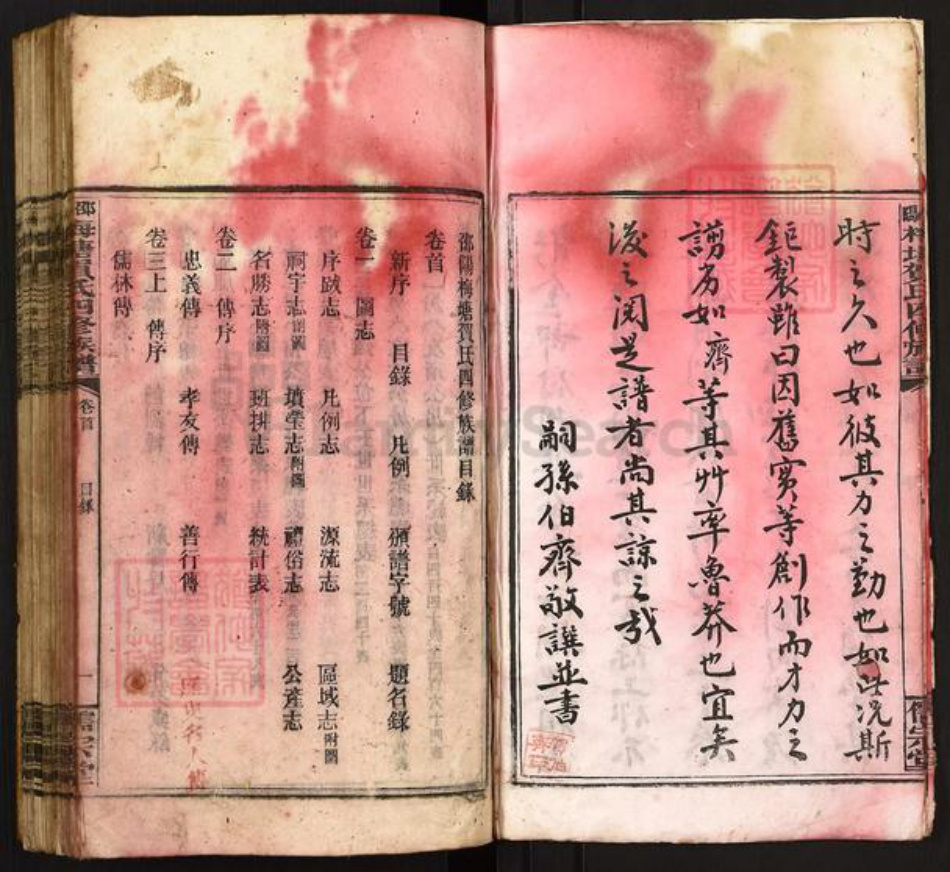 時之久也如彼其力之勤也如此況斯
鉅製雖曰因舊實等創作而才力之
謭劣如齊等其艸率魯莽也宜矣
後之閱是譜者尚其諒之哉
嗣孫伯齊敬譔並書
邵陽梅塘賀氏四修族譜目錄
卷首
新序 目錄 凡例 頒譜字號 題名錄
卷一 圖志
序跋志 凡例志 源流志 區域志附圖
祠宇志附圖 墳塋志附圖 禮俗志 公產志
名勝志附圖 班排志 統計表
卷二 傳序
忠義傳 孝友傳 善行傳
卷三上 傳序
儒林傳
邵梅塘賀氏四修族譜 卷首 目錄 一
FamilySearch